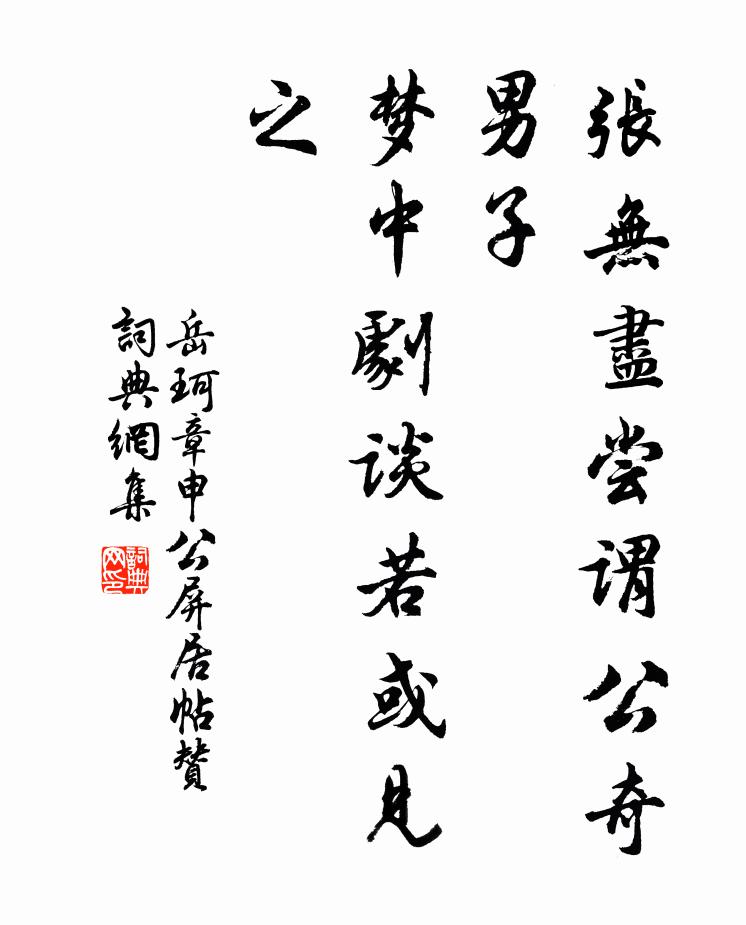 張無盡尝謂公奇
男子
梦中劇談若或見
之
岳珂章申公屏居帖贊
詞典網集
詞典
网印